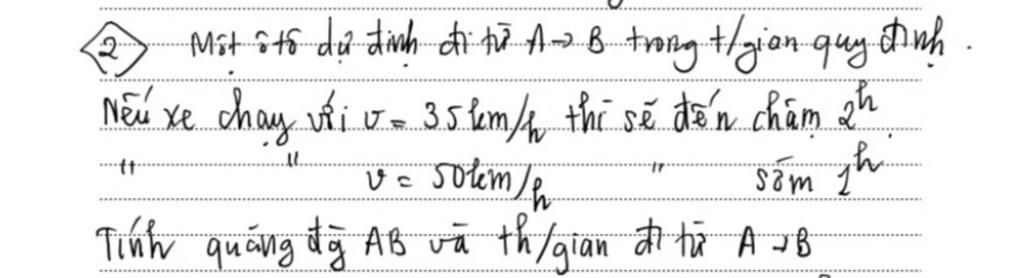 2 Một ôtô dự định đi từ A→B trong t/gian quy định.
Nếu xe chạy với v = 35km/h thì sẽ đến chậm 2h.
" " v = 50km/h " sớm 1h
Tính quãng đg AB và th/gian đi từ A→B